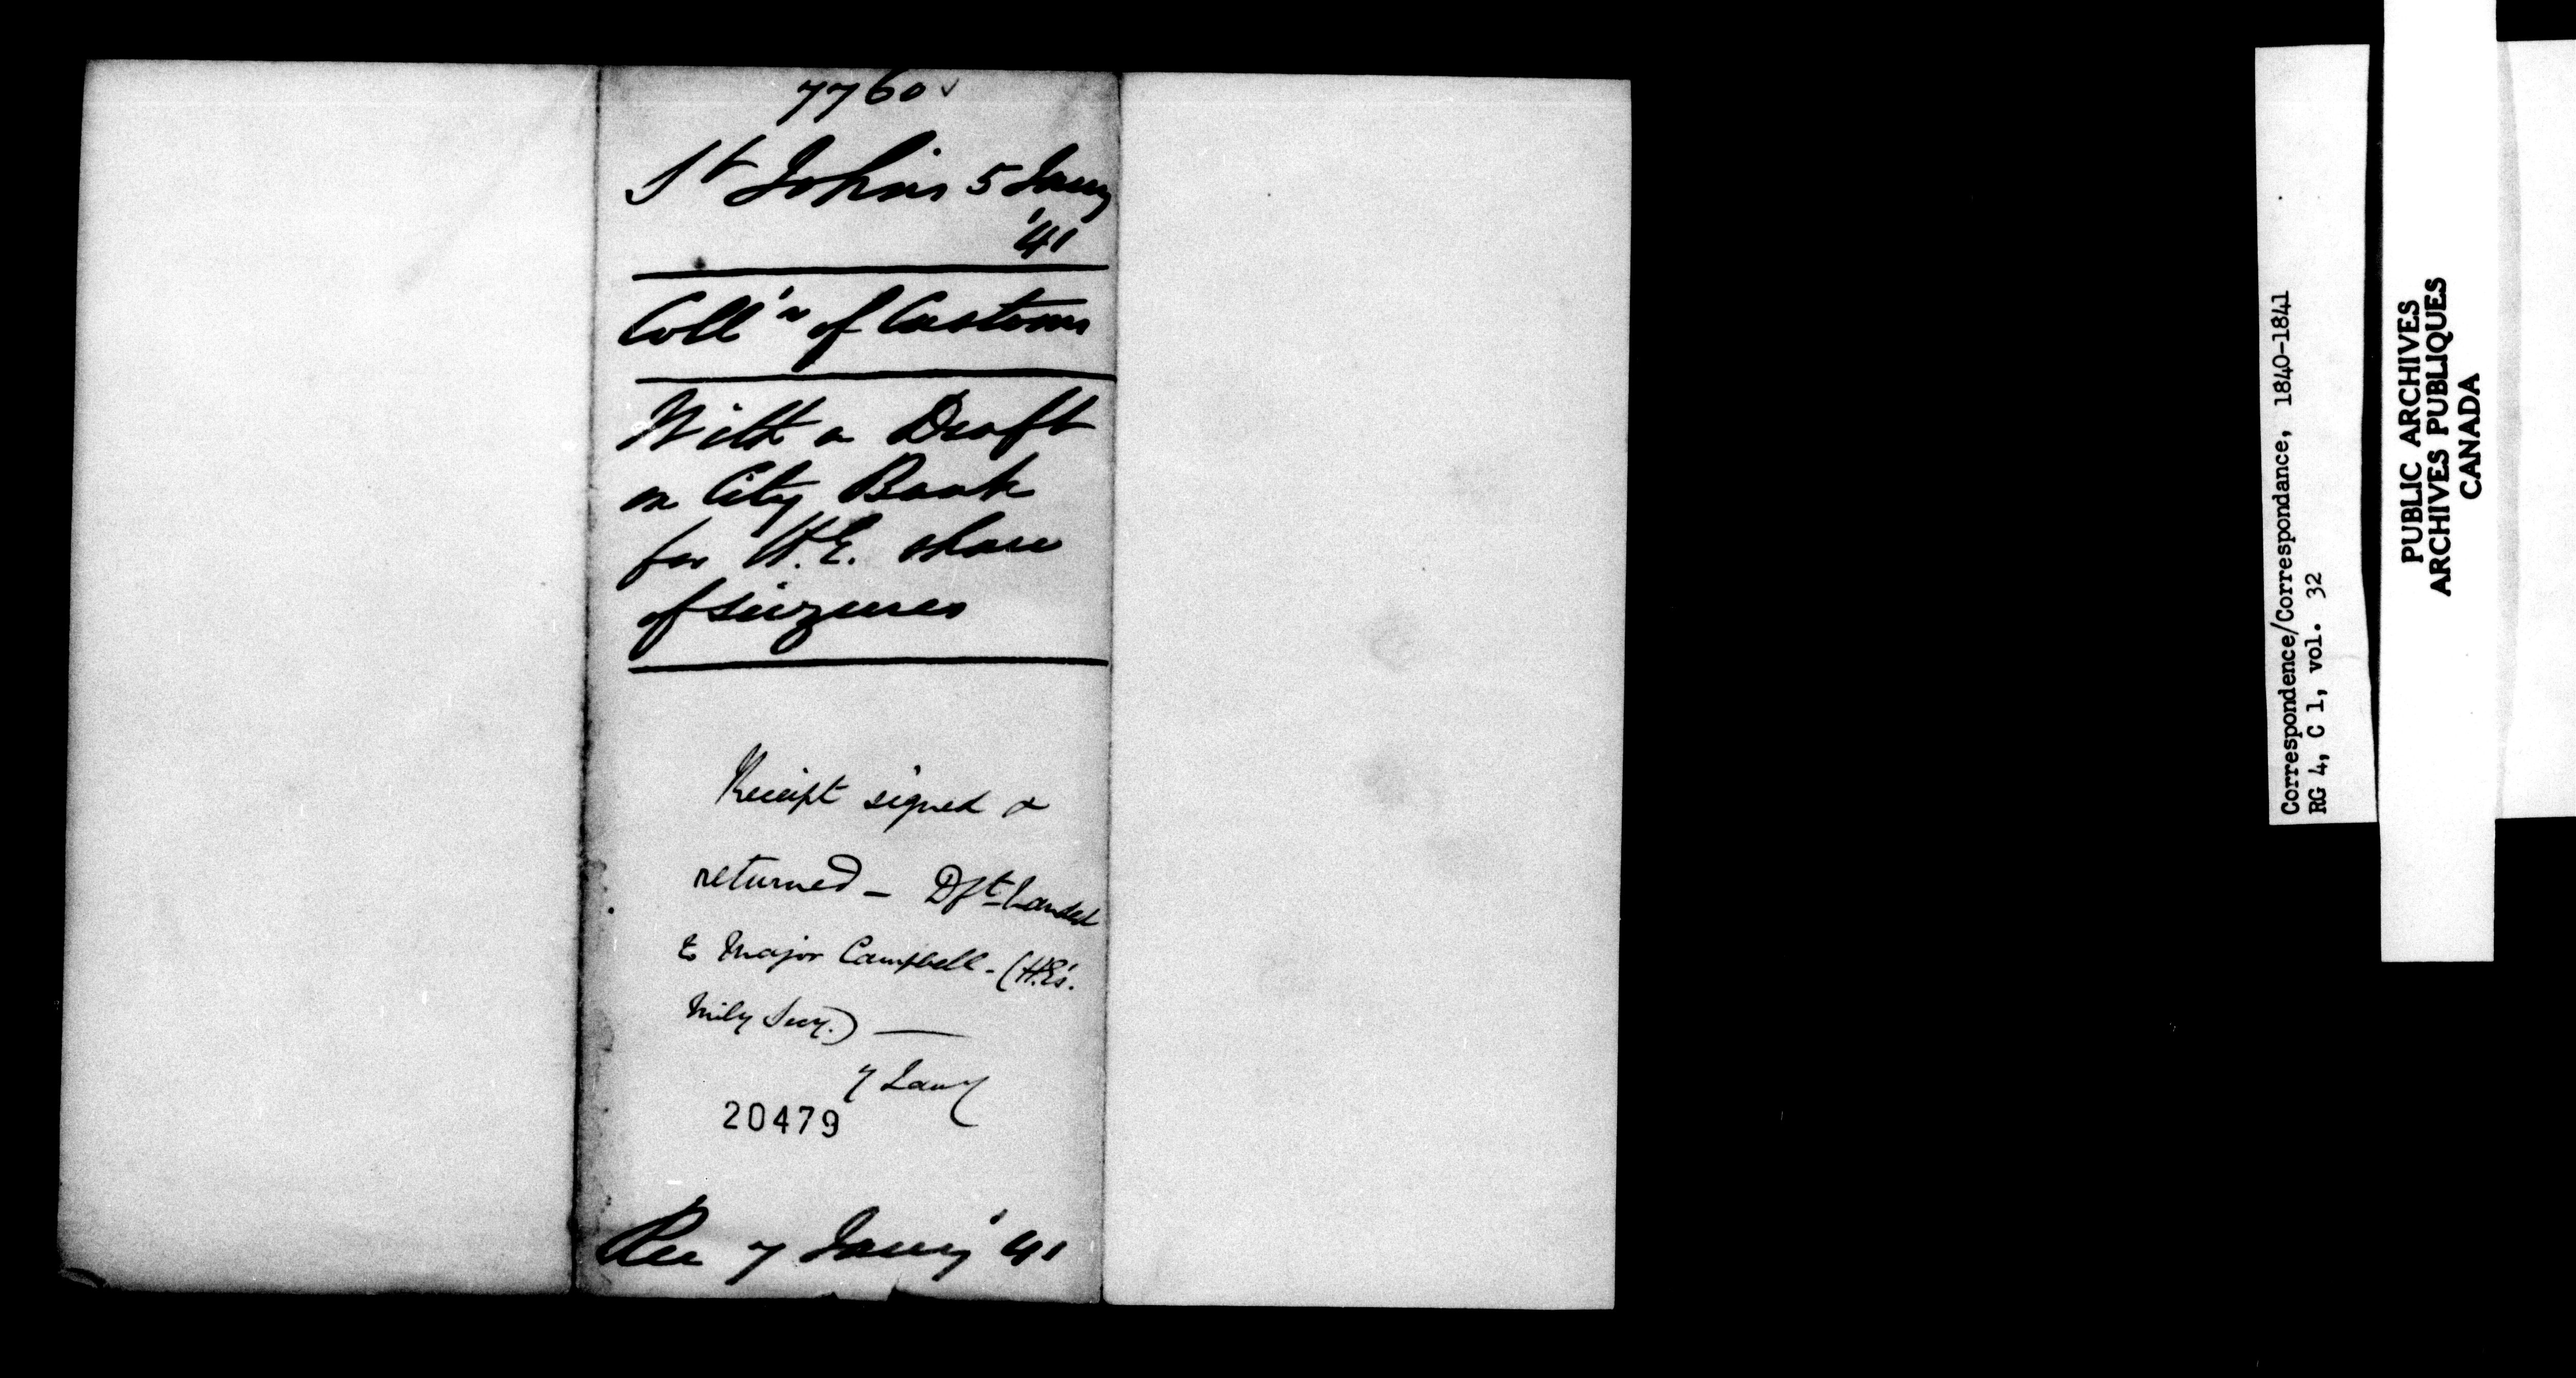 7760
St Johns 5 Jany
'41
Coll'r of Customs
With a Draft
on City Bank
for H.E. share
of seizures
Receipt signed &
returned — Dft handed
to Major Campbell - (H.E's.
Mily Secy.) —
7 Jany
20479
Rec 7 Jany '41
Correspondence/Correspondance, 1840-1841
RG 4, C 1, vol. 32
PUBLIC ARCHIVES
ARCHIVES PUBLIQUES
CANADA